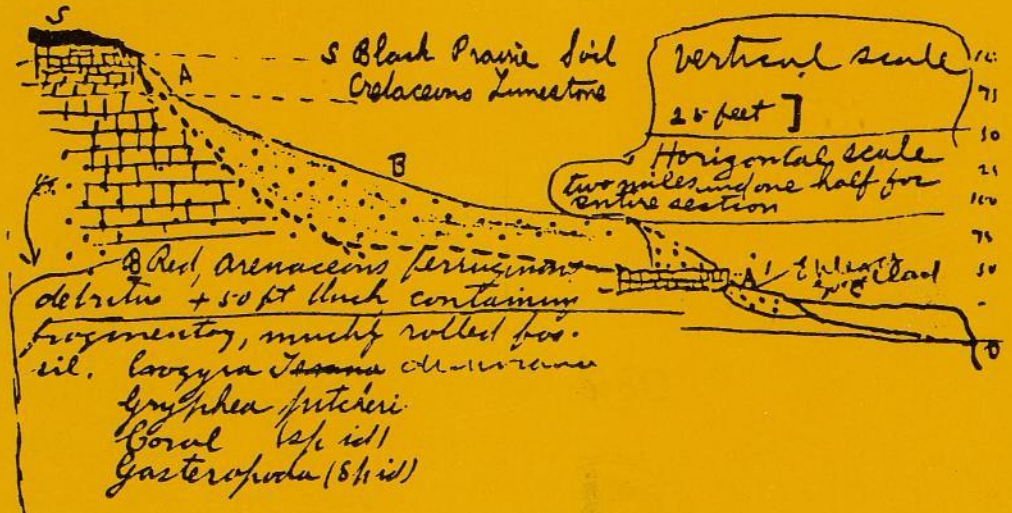 S
A
S Black Prairie Soil
Cretaceous Limestone
B
vertical scale
25 feet ]
Horizontal scale
two miles and one half for
entire section
75
50
25
100
75
50
0
B Red, arenaceous ferruginous
debritus + 50 ft thick containing
fragmentary, much rolled fos-
sil. Exogyra Texana
Gryphea pitcheri
Coral (sp id)
Gasteropoda (Sp id)
A'